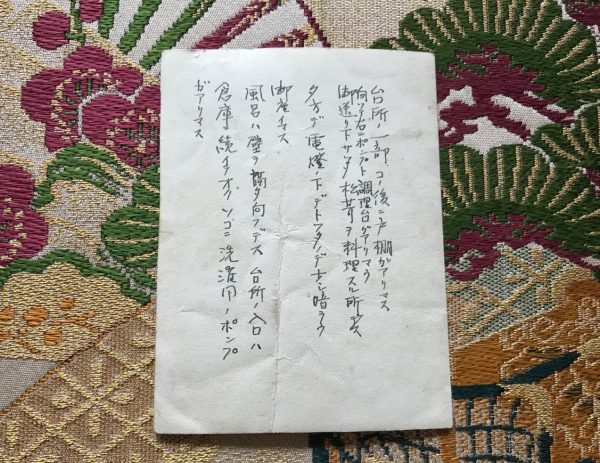 台所ノ一部 コノ後ニ戸棚ガアリマス
向ッテ右ニポンプト調理台ガアリマス
御送リ下サッタ松茸ヲ料理スル所デス
夕方デ電燈ノ下デトッタノデ少シ暗ラク
御座イマス
風呂ハ壁ヲ隔タ向フデス 台所ノ入口ハ
倉庫ノ続イテオリ ソコニ洗濯用ノポンプ
ガアリマス